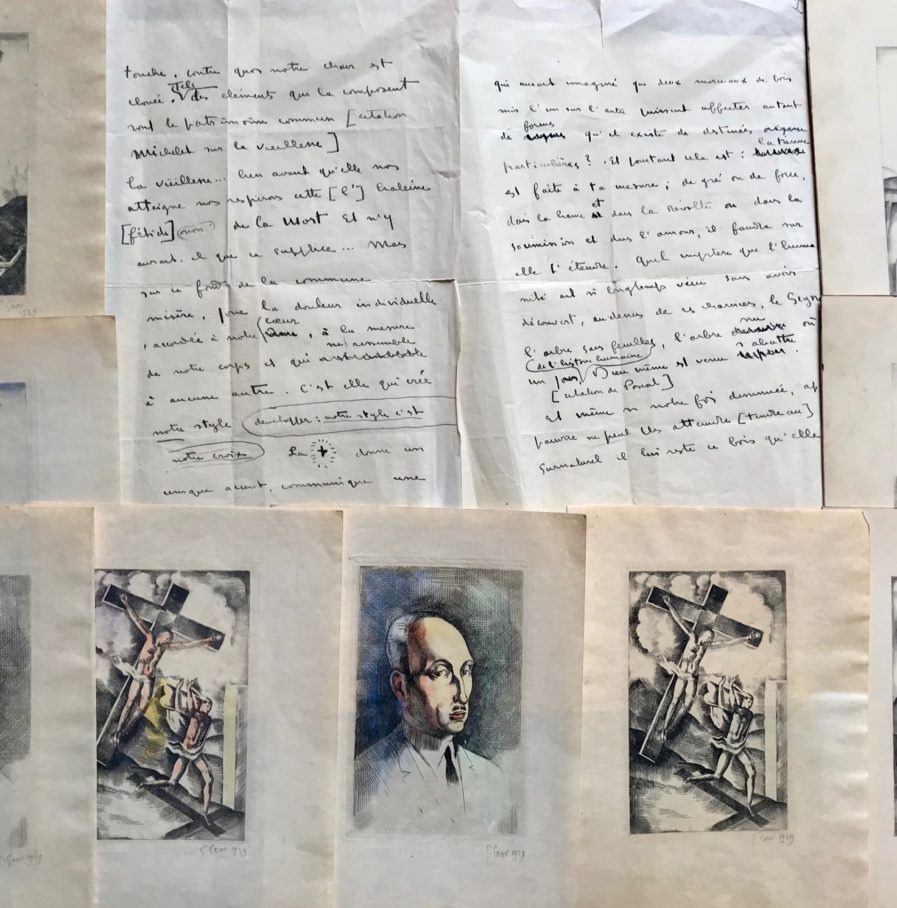 touche, contre quoi notre chair est
clouée. Tels des éléments qui la composent
sont le patrimoine commun [citation
Michelet sur la vieillesse]
La vieillesse... bien avant qu'elle nos
atteigne nos respirons cette [l'] haleine
[fétide] (non?) de la Mort. Et n'y
aurait-il que ce supplice... Mais
sur ce fond de la commune
misère, joue la douleur individuelle
, accordée à notre cœur, à la mesure
de notre corps et qui ne ressemble
à aucune autre. C'est elle qui crée
notre style (développer: notre style c'est
notre croix) La + donne un
unique accent, communique une
qui aurait imaginé que deux morceaux de bois
mis l'un sur l'autre puissent affecter autant
de formes qu'il existe de destinées
particulières? Et pourtant cela est: la tienne
est faite à ta mesure; de gré ou de force,
dans la haine et dans la révolte ou dans la
soumission et dans l'amour, il faudra sur
elle t'étendre. Quel mystère que l'huma
nité ait si longtemps vécu sans avoir
découvert, au-dessus de ses charniers, le Signe
l'arbre sans feuilles, l'arbre nu où
un jour de l'histoire humaine Dieu même est venu s'abattre.
[citation de Pascal]
Et même si notre foi diminuée, ap
pauvrie ne peut les atteindre [tendre au]
surnaturel il lui reste ce bois qu'elle
1929
1929
1929
1929